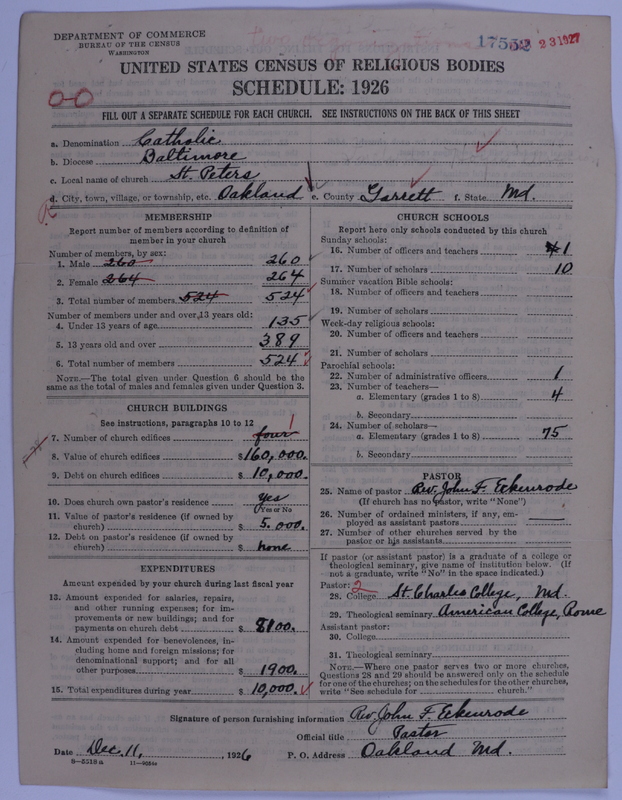 DEPARTMENT OF COMMERCE
BUREAU OF THE CENSUS
WASHINGTON
17552 23 1927
UNITED STATES CENSUS OF RELIGIOUS BODIES
SCHEDULE: 1926
0-0
FILL OUT A SEPARATE SCHEDULE FOR EACH CHURCH. SEE INSTRUCTIONS ON THE BACK OF THIS SHEET
a. Denomination Catholic
b. Diocese Baltimore
c. Local name of church St. Peters
d. City, town, village, or township, etc. Oakland e. County Garrett f. State Md.
MEMBERSHIP
Report number of members according to definition of
member in your church
Number of members, by sex:
1. Male 260 260
2. Female 264 264
3. Total number of members 524 524
Number of members under and over 13 years old:
4. Under 13 years of age 135
5. 13 years old and over 389
6. Total number of members 524
NOTE.—The total given under Question 6 should be the
same as the total of males and females given under Question 3.
CHURCH BUILDINGS
See instructions, paragraphs 10 to 12
7. Number of church edifices four 1
8. Value of church edifices $160,000.
9. Debt on church edifices $10,000.
10. Does church own pastor's residence yes
(Yes or No)
11. Value of pastor's residence (if owned by
church) $5.000.
12. Debt on pastor's residence (if owned by
church) $none
EXPENDITURES
Amount expended by your church during last fiscal year
13. Amount expended for salaries, repairs,
and other running expenses; for im-
provements or new buildings; and for
payments on church debt $8100.
14. Amount expended for benevolences, in-
cluding home and foreign missions; for
denominational support; and for all
other purposes $1900.
15. Total expenditures during year $10,000.
CHURCH SCHOOLS
Report here only schools conducted by this church
Sunday schools:
16. Number of officers and teachers 1
17. Number of scholars 10
Summer vacation Bible schools:
18. Number of officers and teachers
19. Number of scholars
Week-day religious schools:
20. Number of officers and teachers
21. Number of scholars
Parochial schools:
22. Number of administrative officers 1
23. Number of teachers—
a. Elementary (grades 1 to 8) 4
b. Secondary
24. Number of scholars—
a. Elementary (grades 1 to 8) 75
b. Secondary
PASTOR
25. Name of pastor Rev. John F. Eckenrode
(If church has no pastor, write "None")
26. Number of ordained ministers, if any, em-
ployed as assistant pastors
27. Number of other churches served by the
pastor or his assistants
If pastor (or assistant pastor) is a graduate of a college or
theological seminary, give name of institution below. (If
not a graduate, write "No" in the space indicated.)
Pastor: 2
28. College St. Charles College, Md.
29. Theological seminary American College, Rome
Assistant pastor:
30. College
31. Theological seminary
NOTE.—Where one pastor serves two or more churches,
Questions 28 and 29 should be answered only on the schedule
for one of the churches; on the schedules for the other churches,
write "See schedule for church."
Signature of person furnishing information Rev. John F. Eckenrode
Official title Pastor
Date Dec. 11, 1926 P. O. Address Oakland Md.
8—5518a 11—9054a